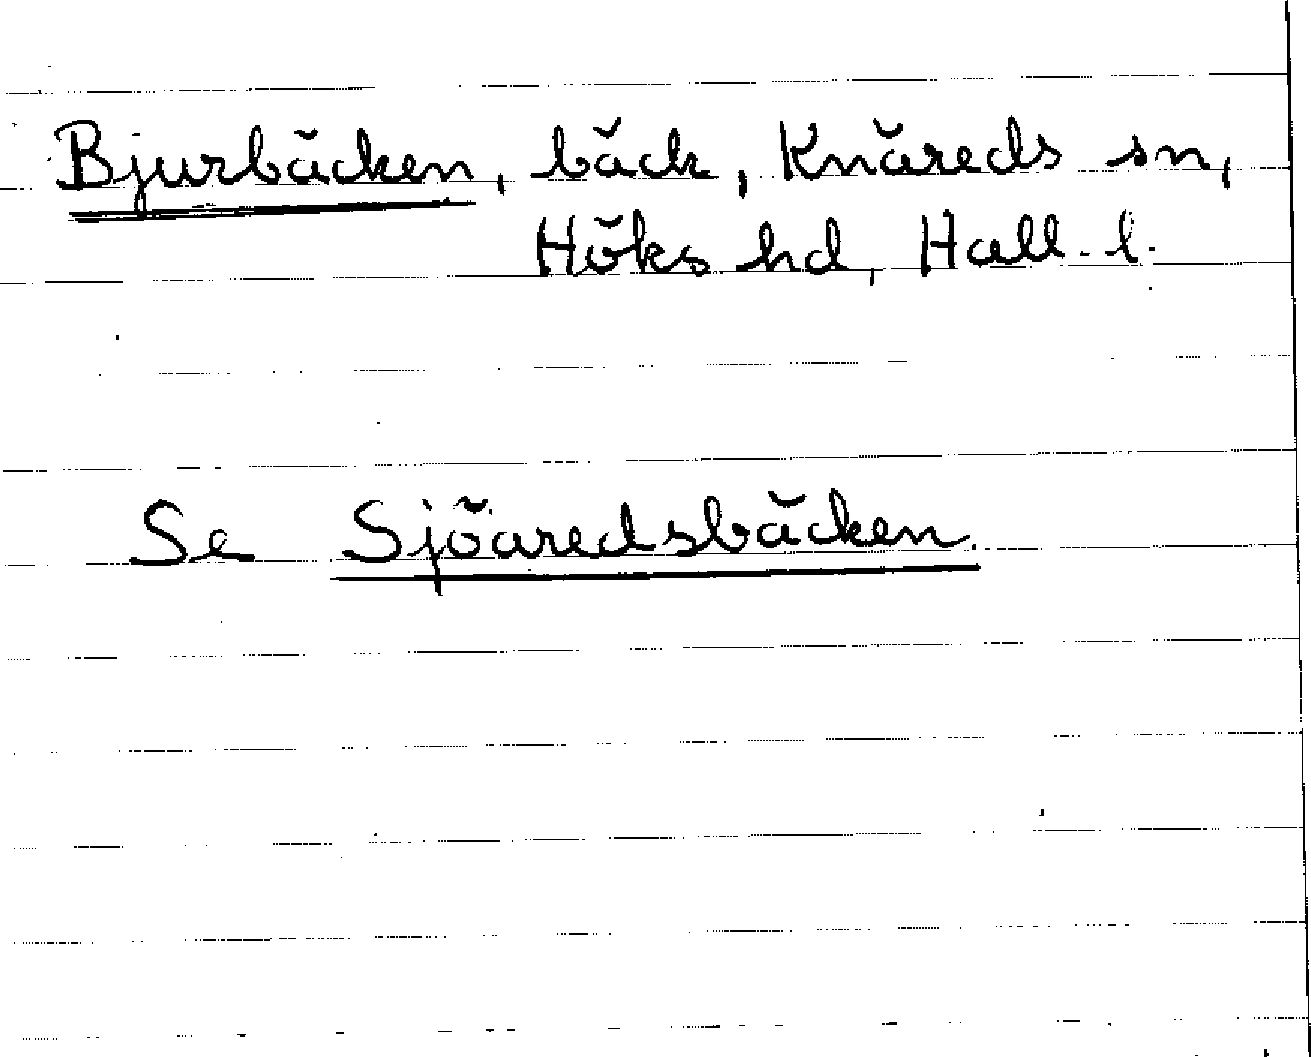 Bjurbäcken, bäck, Knäreds sn,
Höks hd, Hall. l.
Se Sjöaredsbäcken.